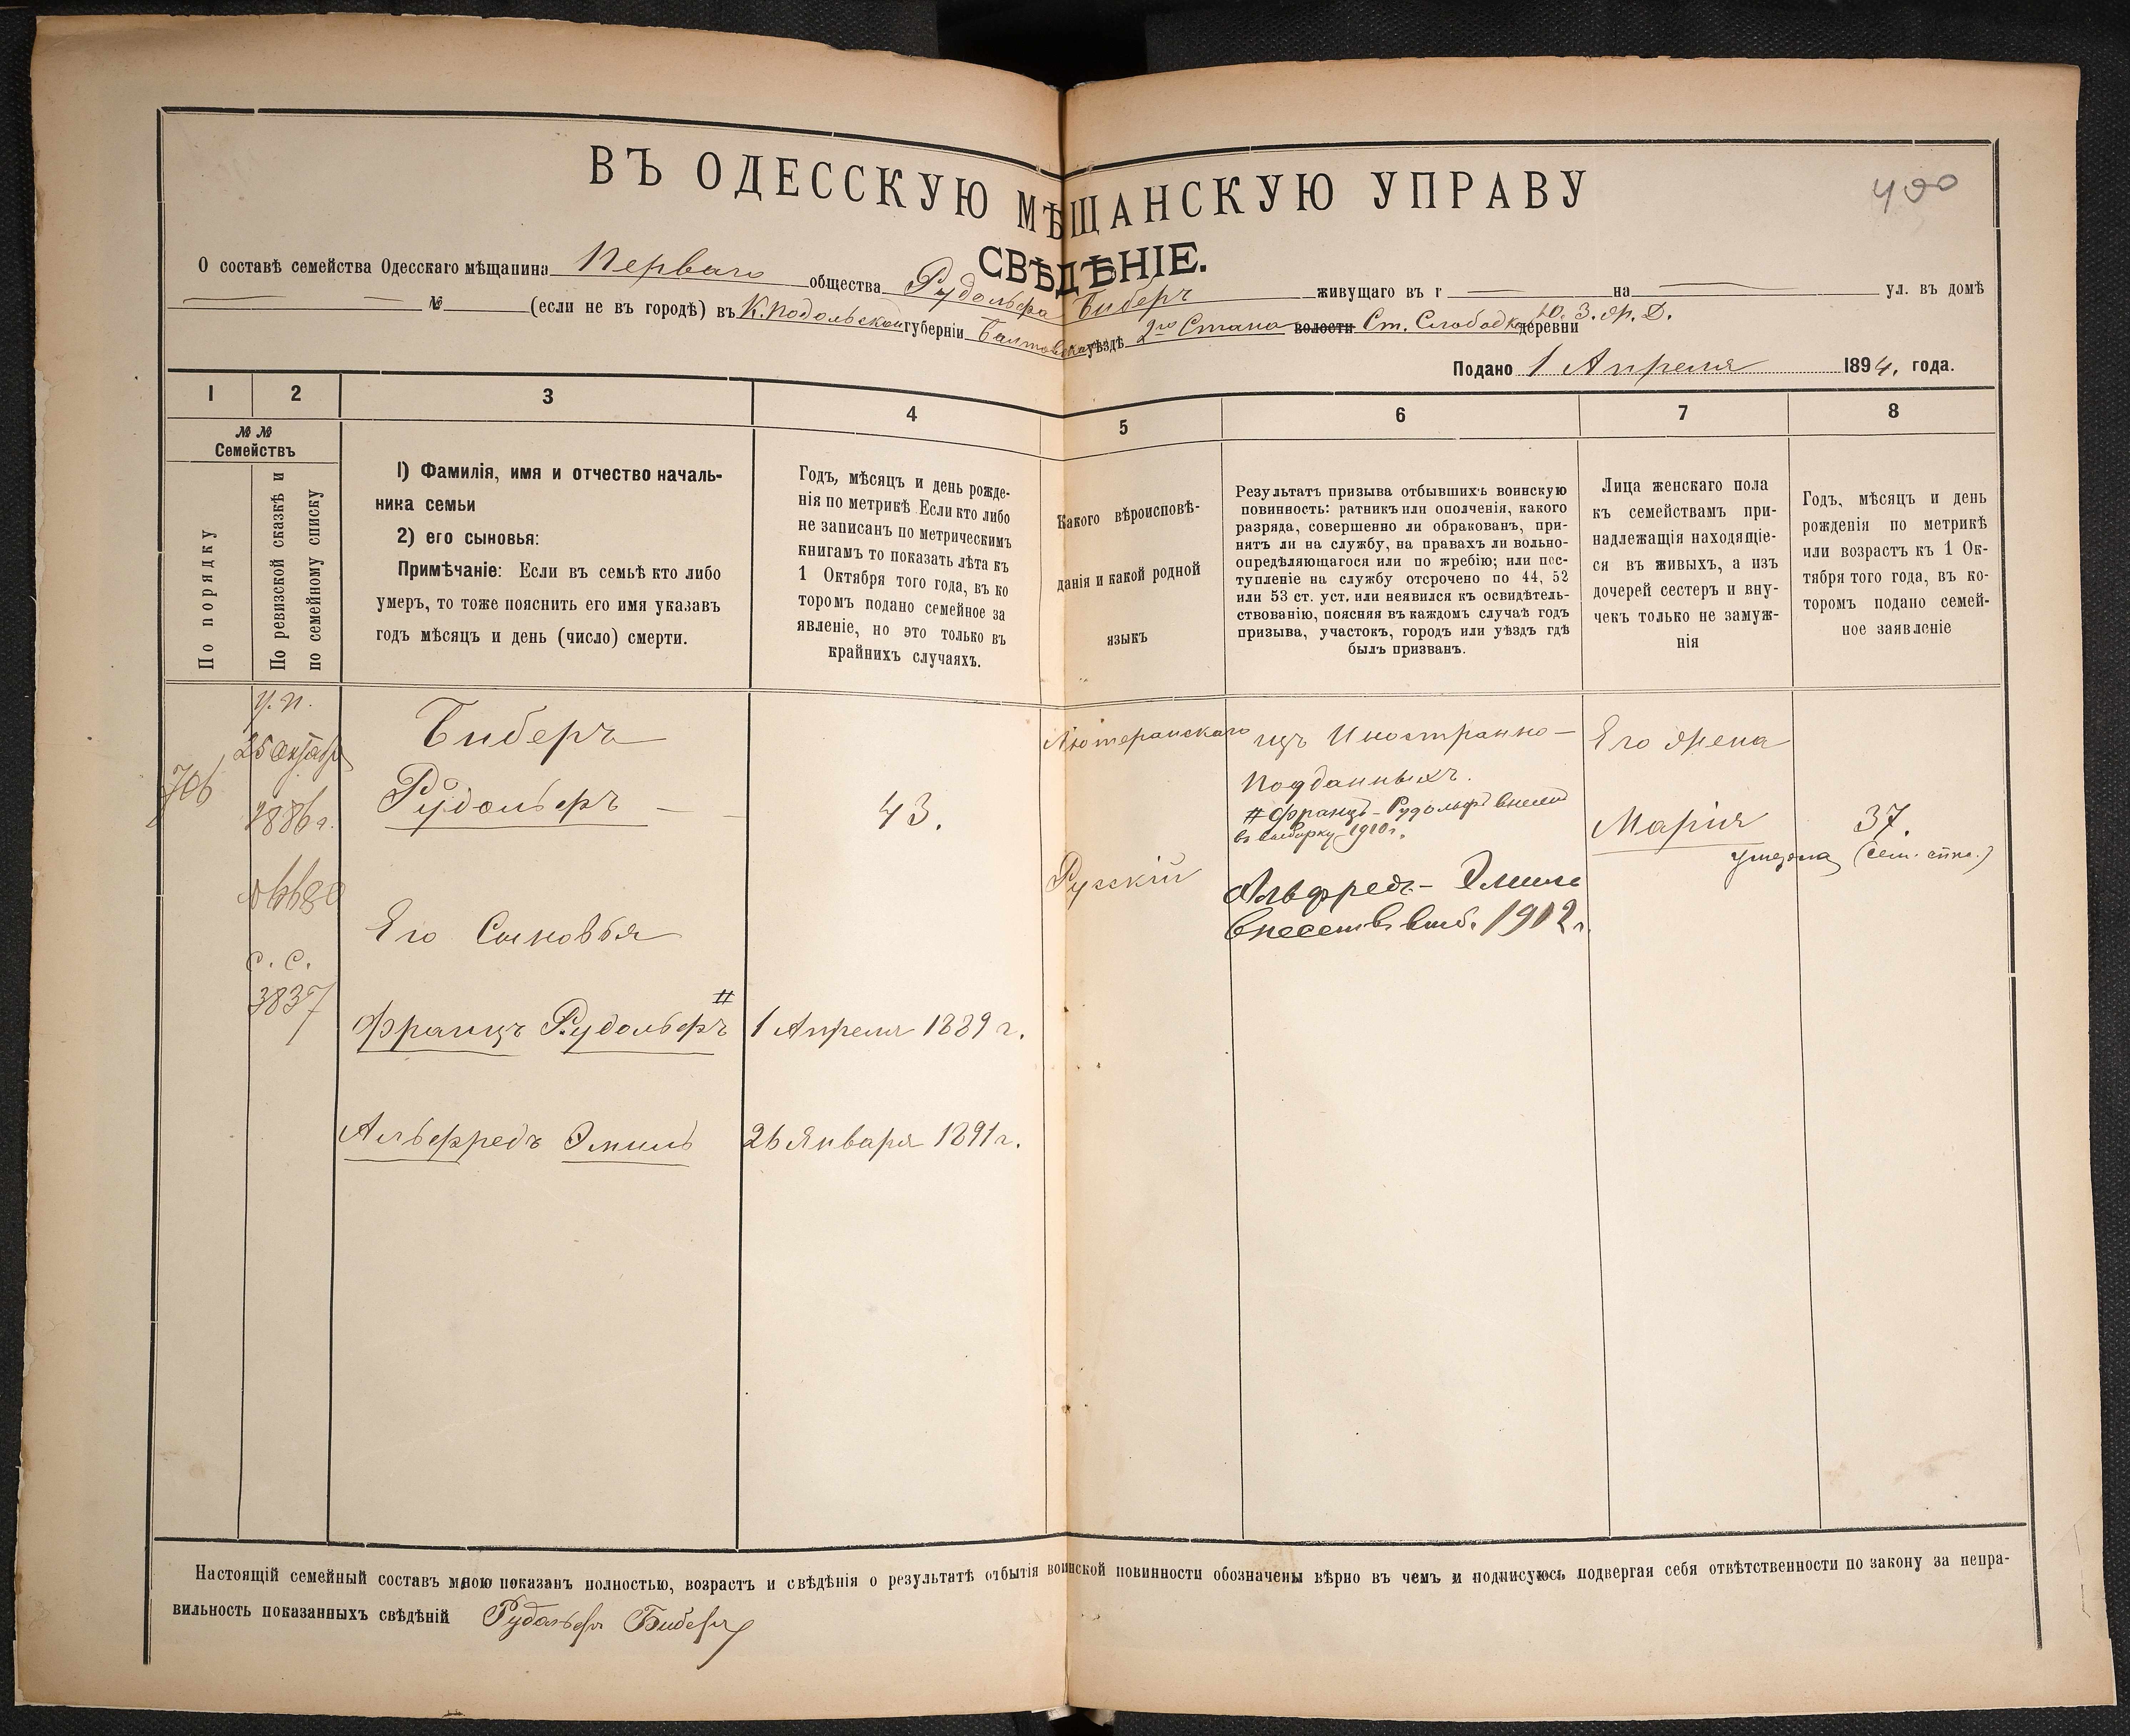 400
ВЪ ОДЕССКУЮ МѢЩАНСКУЮ УПРАВУ
СВѢДѢНІЕ.
О составѣ семейства Одесскаго мѣщанина Перваго общества Рудольфа Биберъ живущаго въ г на ул. въ домѣ
№ (если не въ городѣ) въ К. Подольской губерніи Балтовскаго уѣздѣ 2го Стана волости Ст. Слободка Ю. З. ж. Д. деревни
Подано 1 Апреля 1894, года.
1 2 3 4 5 6 7 8
№ № Семействъ
По порядку
По ревизской сказкѣ и
по семейному списку
1) Фамилія, имя и отчество началь-
ника семьи
2) его сыновья:
Примѣчаніе: Если въ семьѣ кто либо
умеръ, то тоже пояснить его имя указавъ
годъ мѣсяцъ и день (число) смерти.
Годъ, мѣсяцъ и день рожде-
нія по метрикѣ Если кто либо
не записанъ по метрическимъ
книгамъ то показать лѣта къ
1 Октября того года, въ ко
торомъ подано семейное за
явленіе, но это только въ
крайнихъ случаяхъ.
Какого вѣроисповѣ-
данія и какой родной
языкъ
Результатъ призыва отбывшихъ воинскую
повинность: ратникъ или ополченія, какого
разряда, совершенно ли обракованъ, при-
нятъ ли на службу, на правахъ ли вольно-
опредѣляющагося или по жребію; или пос-
тупленіе на службу отсрочено по 44, 52
или 53 ст. уст. или неявился къ освидѣтель-
ствованію, поясняя въ каждомъ случаѣ годъ
призыва, участокъ, городъ или уѣздъ гдѣ
былъ призванъ.
Лица женскаго пола
къ семействамъ при-
надлежащія находящіе-
ся въ живыхъ, а изъ
дочерей сестеръ и вну-
чекъ только не замуж-
нія
Годъ, мѣсяцъ и день
рожденія по метрикѣ
или возрастъ къ 1 Ок-
тября того года, въ ко-
торомъ подано семей-
ное заявленіе
706
У. П.
25 Октября
1886 г.
С. С.
3837
Биберъ
Рудольфъ
43.
Его Сыновья
Францъ Рудольфъ #
1 Апреля 1889 г.
Альфредъ Эмиль
26 Января 1891 г.
Лютеранскаго
Русскій
изъ Иностранно-
подданныхъ.
# Францъ-Рудольфъ внесенъ
въ выборку 1910 г.
Альфредъ-Эмиль
внесенъ въ выб. 1912 г.
Его жена
Марія
37.
умерла (Сем. спис.)
Настоящій семейный составъ мною показанъ полностью, возрастъ и свѣдѣнія о результатѣ отбытія воинской повинности обозначены вѣрно въ чемъ и подписуюсь подвергая себя отвѣтственности по закону за непра-
вильность показанныхъ свѣдѣній Рудольфъ Биберъ